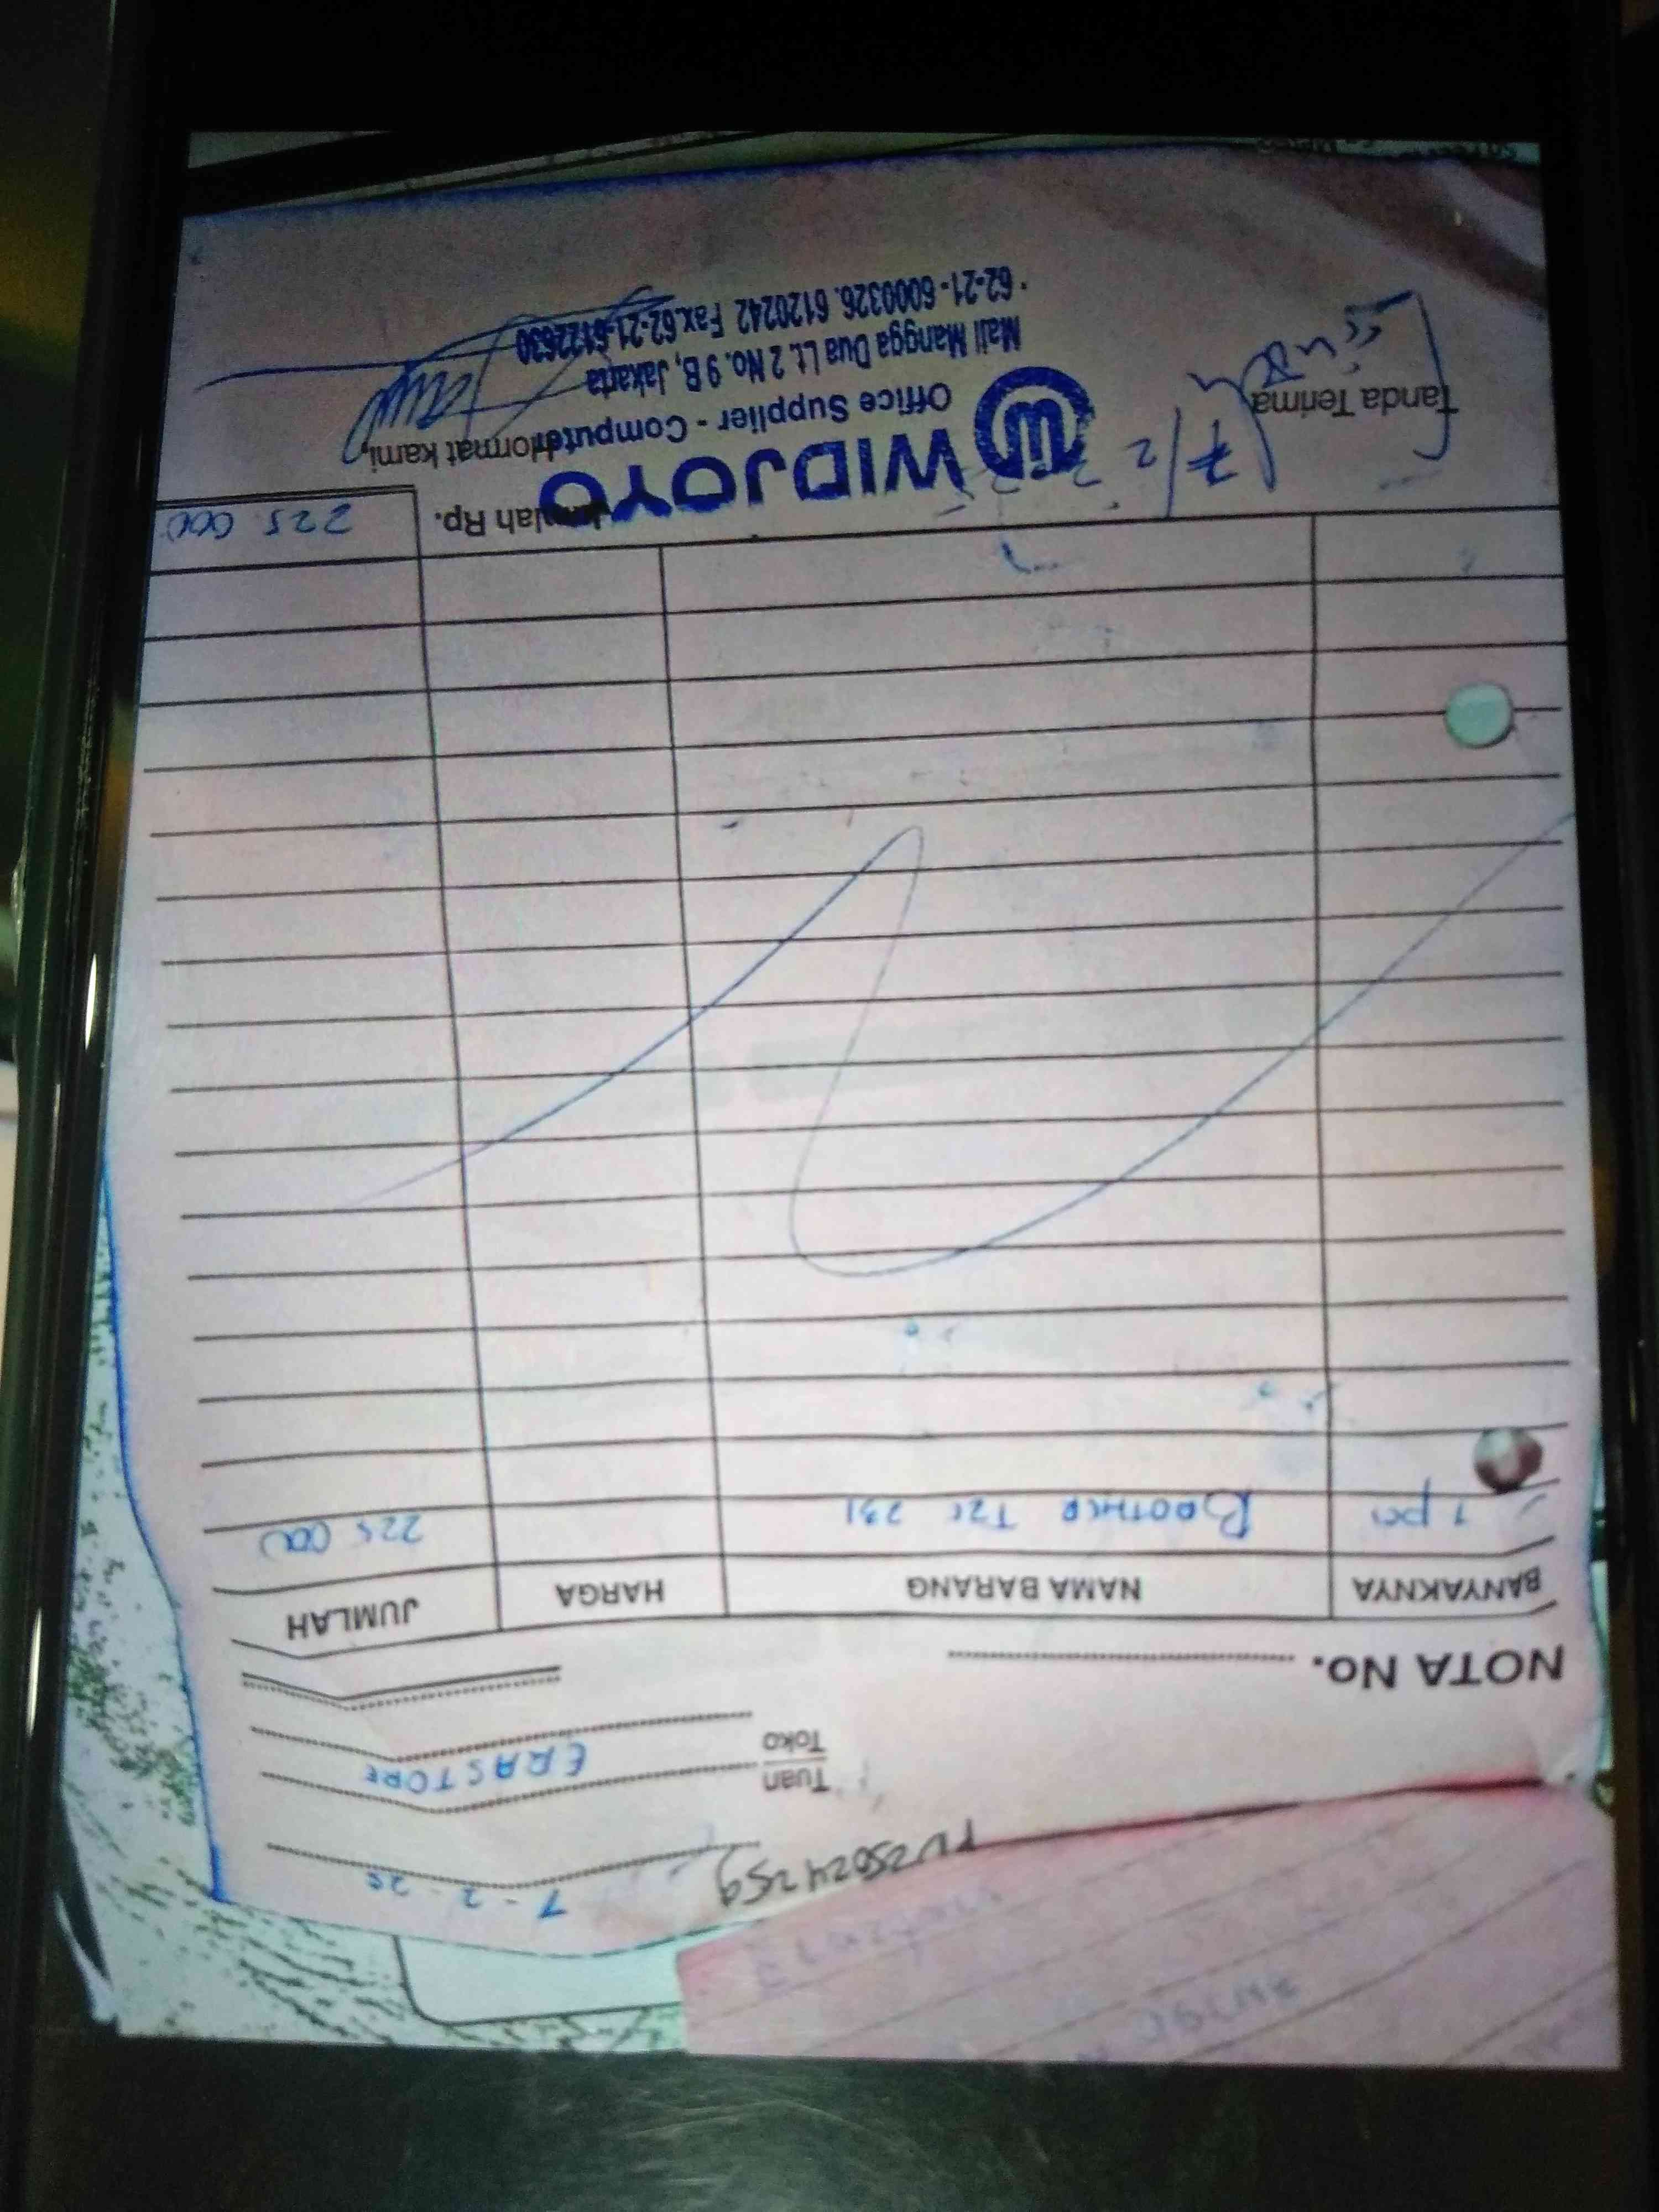 7 - 2 - 25
Tuan
Toko
ERASTORE
NOTA No.
BANYAKNYA NAMA BARANG HARGA JUMLAH
1 pcs BROTHER TZE 231 225 000
Jumlah Rp. 225 000
Tanda Terima
7/2
Hormat kami,
WIDJOYO
Office Supplier - Computer
Mall Mangga Dua Lt. 2 No. 9 B, Jakarta
62-21- 6000326. 6120242 Fax.62-21-6122630